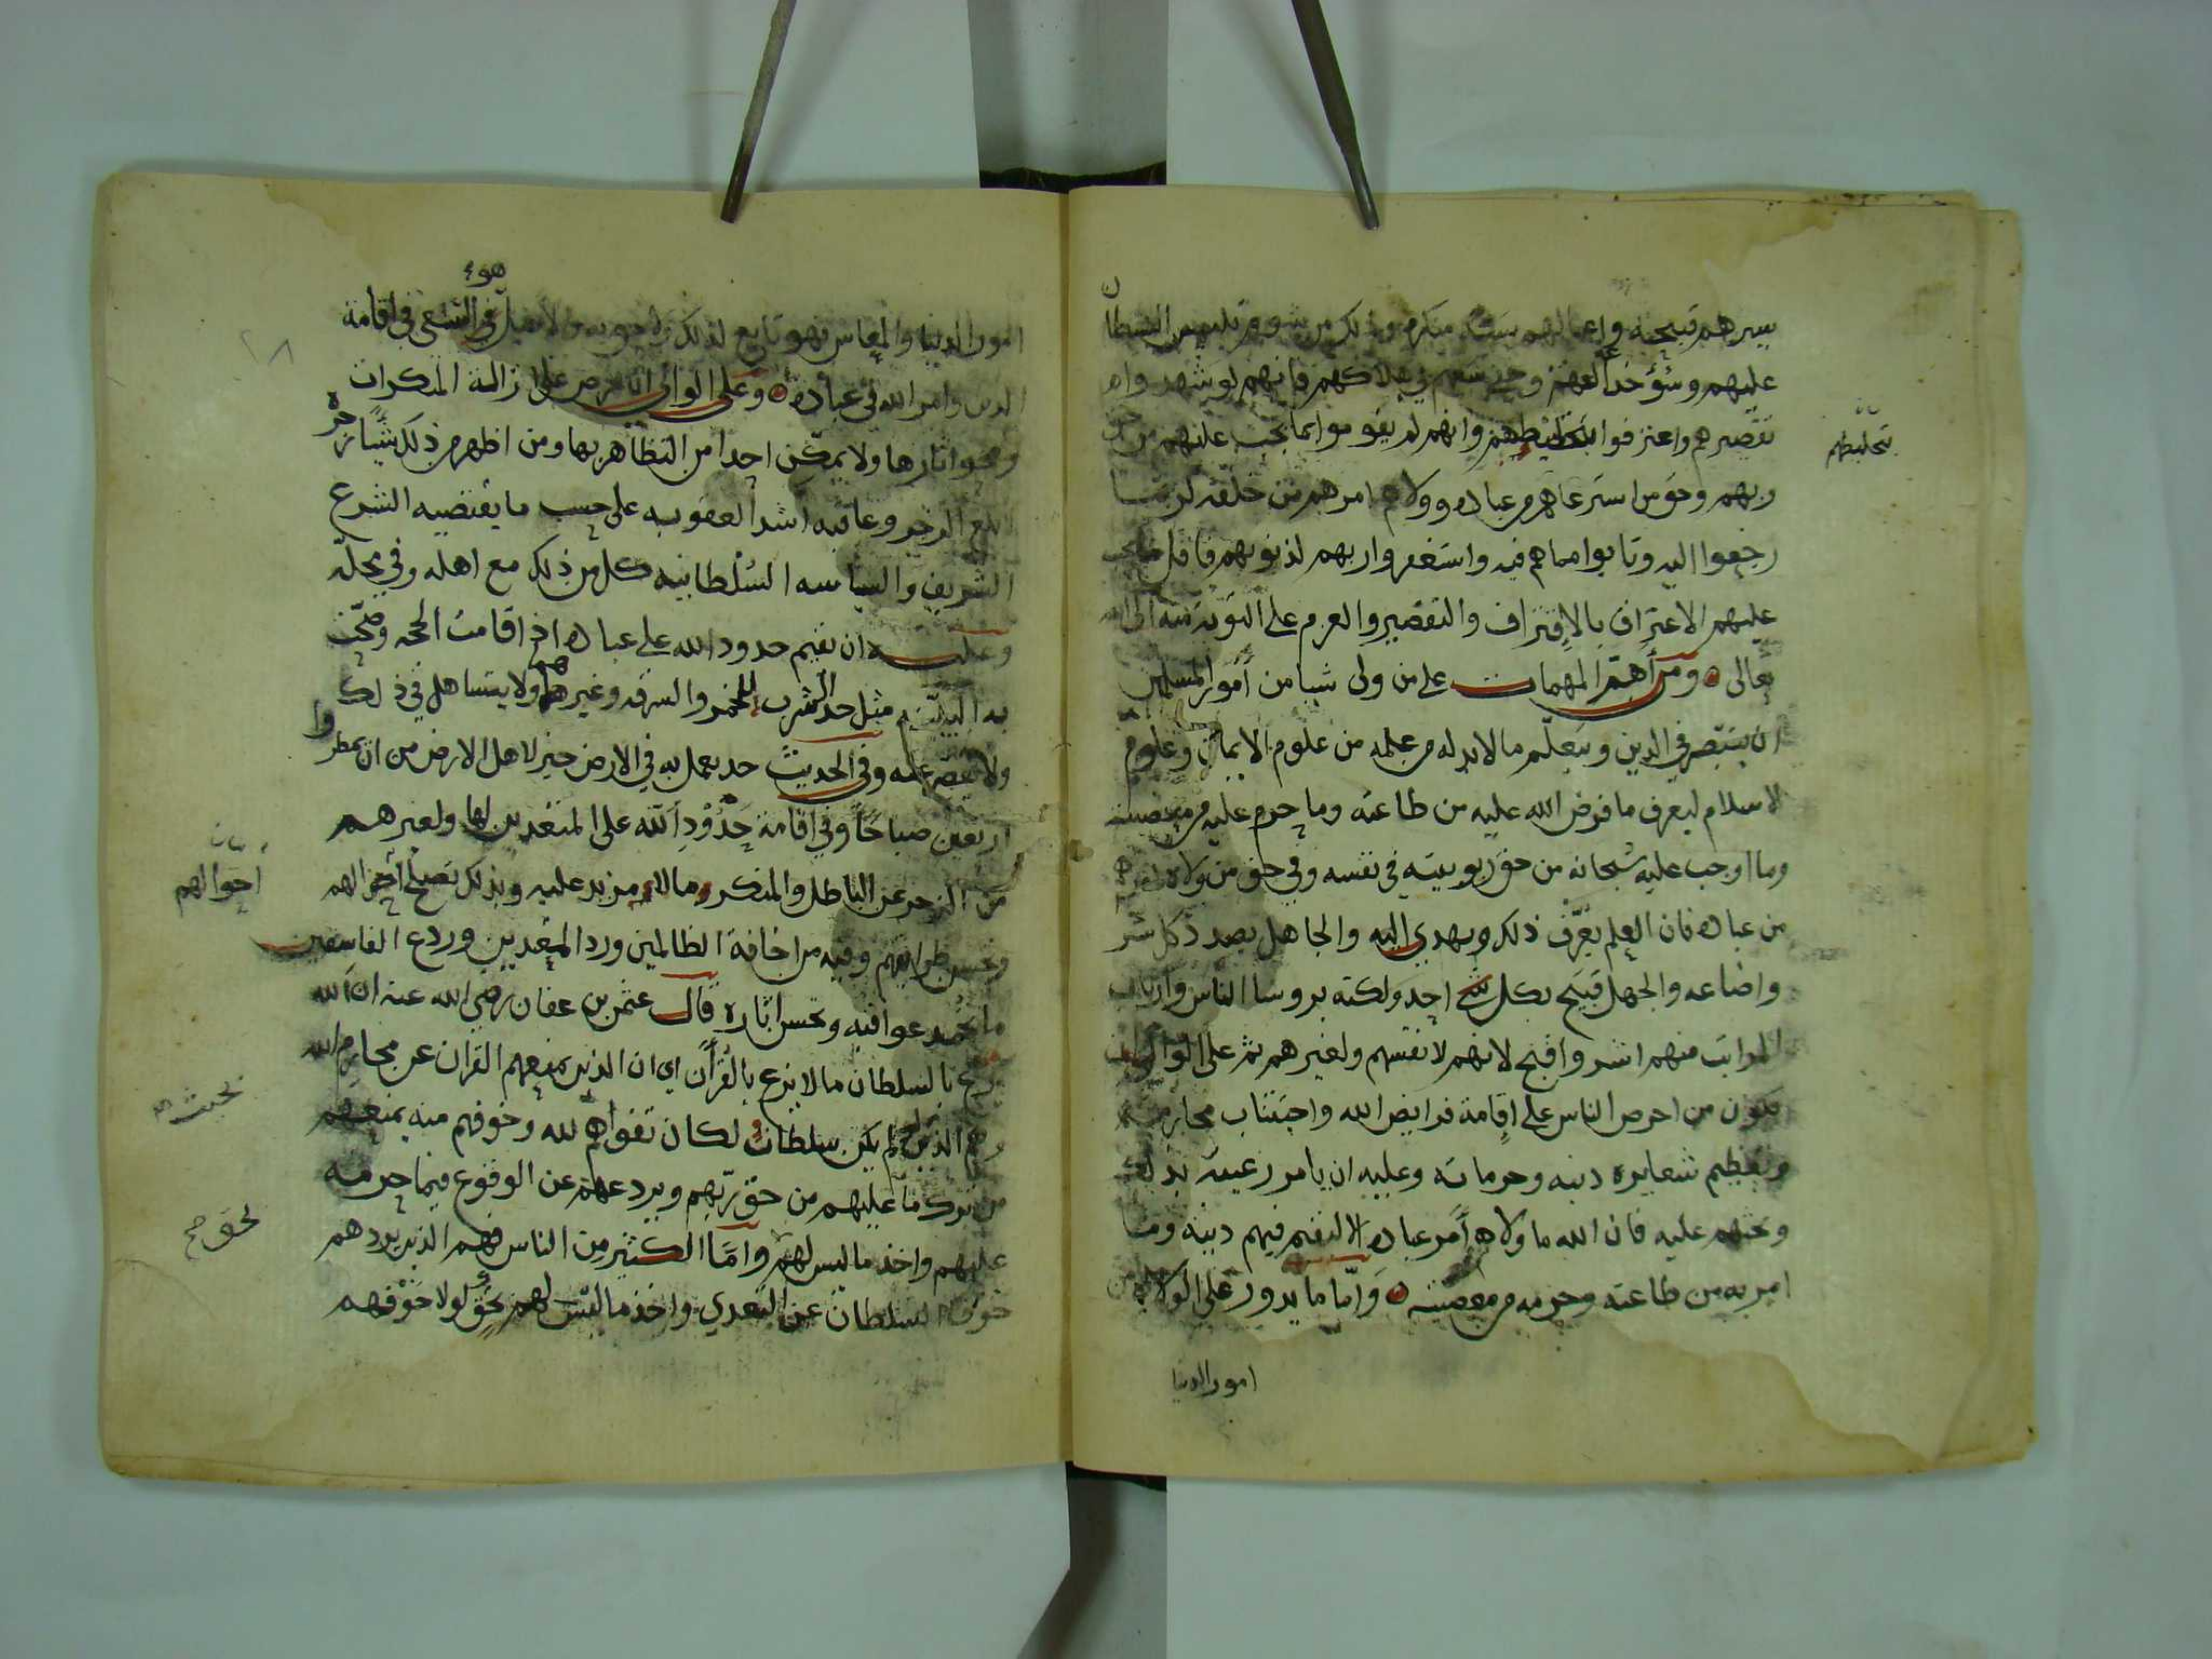 سيرهم قبيحة واعمالهم سيئة منكرة وذلك من شؤم تلبيس الشيطان
عليهم وشؤ خداعهم وحرسعيه في هلاكهم فانهم لو شهدوا
تقصيرهم واعترفوا بتخليطهم وانهم لم يقوموا بما يجب عليهم من حق
ربهم وحق من استرعاهم من عباده وولاهم امرهم من خلقه لربما
رجعوا اليه وتابوا مما هم فيه واستغفروا ربهم لذنوبهم فاقل ما يجب
عليهم الاعتراف بالاقتراف والتقصير والعزم على التوبة منه الى الله
تعالى ومن أهم المهمات على من ولى شيا من أمور المسلمين
ان يتبصر في الدين ويتعلم ما لابد له من علمه من علوم الايمان وعلوم
الاسلام ليعرف ما فرض الله عليه من طاعته وما حرم عليه من معصيته
وما اوجب عليه سبحانه من حق ربوبيته في نفسه وفي حق من ولاه امره
من عباده فان العلم يعرف ذلك ويهدي اليه والجاهل بصد ذلك
واضاعه والجهل قبيح بكل احد ولكنه بروسا الناس وارباب
المراتب منهم اشر واقبح لانهم لانفسهم ولغيرهم ثم على الوالي ان
يكون من احرص الناس على اقامة فرايض الله واجتناب محارمه
وتعظيم شعايره دينه وحرماته وعليه ان يامر رعيته بذلك
ويحثهم عليه فان الله ما ولاه أمر عباده الا ليقيم فيهم دينه وما
امر به من طاعته وحرمه من معصيته وامّا ما يدور على الولاة من
امور الدنيا
بتخليطهم
هو
امور الدنيا والمعاش فهو تابع لذلك في السعي في اقامة
الدين وامر الله في عباده وعلى الوالي ان يحرص على ازالة المنكرات
ومحو اثارها ولا يمكن احدا من التظاهر بها ومن اظهر من ذلك شيئا زجره
ابلغ الزجر وعاقبه اشد العقوبه على حسب ما يقتضيه الشرع
الشريف والسياسه السلطانيه كل من ذلك مع اهله وفي محله
وعليه ان يقيم حدود الله على عباده اذ اقامت الحجه وصحت
به البينة مثل حد الشرب للخمر والسرقه وغيرهما ولا يتساهل في ذلك
ولا يقصر عنه وفي الحديث حد يعمل به في الارض خير لاهل الارض من ان يمطروا
اربعين صباحاً وفي اقامة حدود الله على المتعدين لها ولغيرهم
من الزجر عن الباطل والمنكر ما لا مزيد عليه وبذلك تصلح أحوالهم
وتحسن طرايقهم وفيه من اخافة الظالمين ورد المتعدين وردع الفاسقين
ما تحمد عواقبه وتحسن اثاره قال عثمن بن عفان رضي الله عنه ان الله
يزع بالسلطان ما لا يزع بالقرآن اي ان الذين يمنعهم القران عن محارم الله
هم الذين لو لم يكن سلطان لكان تقواهم لله وخوفهم منه يمنعهم
من ترك ما عليهم من حق ربهم ويردعهم عن الوقوع فيما حرمه
عليهم واخذ ما ليس لهم وامّا الكثير من الناس فهم الذين يردهم
خوف السلطان عن التعدي واخذ ما ليس لهم بحق لولا خوفهم
احوالهم